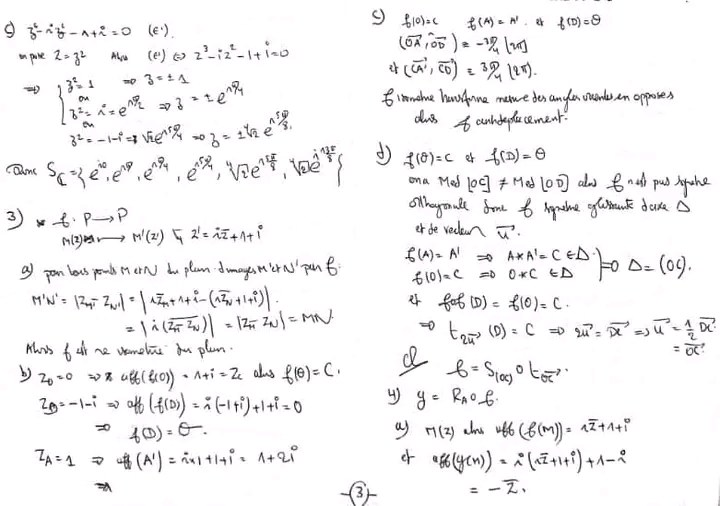 c) z⁶ - iz⁴ - 1 + i = 0 (e').
on pose Z = z² Alors (e') ⇔ Z³ - iZ² - 1 + i = 0
⇒ { z² = 1 ⇒ z = ±1
ou
z² = i = e^{iπ/2} ⇒ z = ± e^{iπ/4}
ou
z² = -1-i = √2 e^{i5π/4} ⇒ z = ± ⁴√2 e^{i5π/8}.
Donc S_ℂ = { e^{i0}, e^{iπ}, e^{iπ/4}, e^{i5π/4}, ⁴√2 e^{i5π/8}, ⁴√2 e^{i13π/8} }
3) * f: P → P
M(z) ↦ M'(z') tq z' = i z̄ + 1 + i
a) pour tous points M et N du plan d'images M' et N' par f.
M'N' = |z_M' - z_N'| = | i z̄_M + 1 + i - (i z̄_N + 1 + i) |
= | i (z̄_M - z̄_N) | = |z_M - z_N| = MN.
Alors f est une isométrie du plan.
b) z_O = 0 ⇒ aff(f(O)) = 1+i = z_C alors f(O) = C.
z_D = -1-i ⇒ aff(f(D)) = i(-1+i)+1+i = 0
⇒ f(D) = O.
z_A = 1 ⇒ aff(A') = i×1+1+i = 1+2i
⇒
c) f(O) = C f(A) = A' et f(D) = O
(OA, OD) ≡ -3π/4 [2π]
et (CA', CO) ≡ 3π/4 [2π].
f isométrie transforme mesure des angles orientés en opposés
alors f antidéplacement.
d) f(O) = C et f(D) = O
on a Med [OC] ≠ Med [OD] alors f n'est pas symétrie
orthogonale donc f symétrie glissante d'axe Δ
et de vecteur u.
f(A) = A' ⇒ A*A' = C ∈ Δ
f(O) = C ⇒ O*C ∈ Δ } ⇒ Δ = (OC).
et f∘f(D) = f(O) = C.
⇒ t_{2u}(D) = C ⇒ 2u = DC ⇒ u = 1/2 DC
= OC.
cl f = S_(OC) ∘ t_OC.
4) g = R_A ∘ f.
a) M(z) alors aff(f(M)) = i z̄ + 1 + i
et aff(g(M)) = i (i z̄ + 1 + i) + 1 - i
= - z̄.
-(3)-